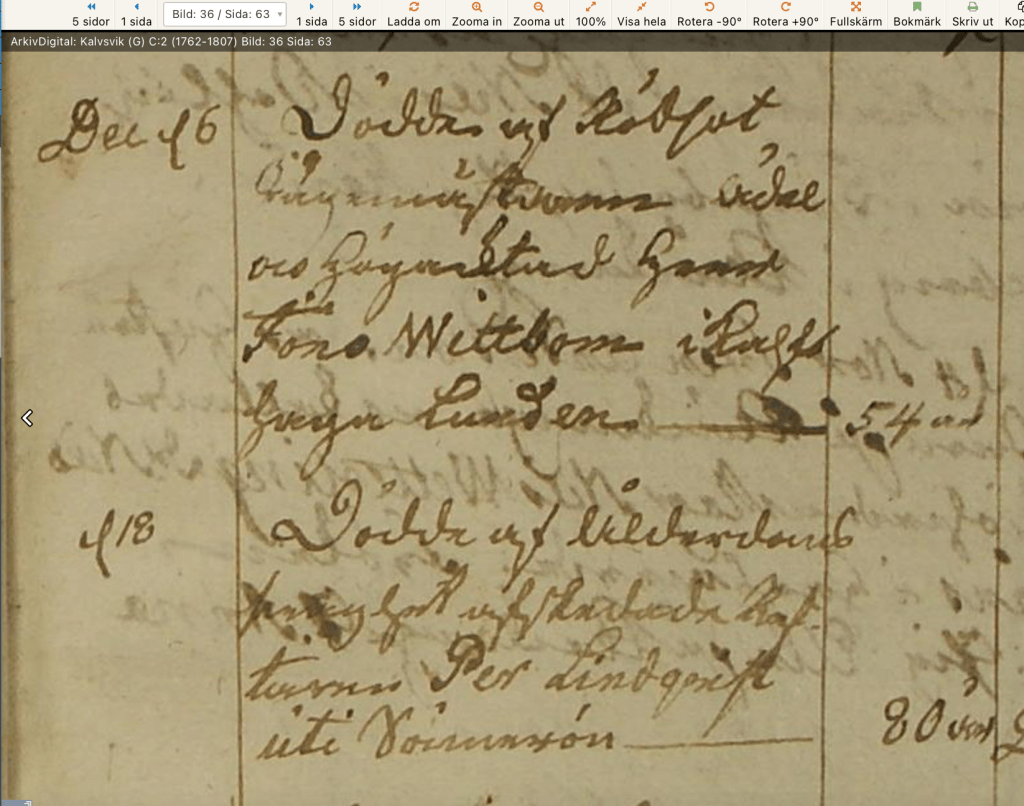 5 sidor 1 sida Bild: 36 / Sida: 63 1 sida 5 sidor Ladda om Zooma in Zooma ut 100% Visa hela Rotera -90° Rotera +90° Fullskärm Bokmärk Skriv ut Kop
ArkivDigital: Kalvsvik (G) C:2 (1762-1807) Bild: 36 Sida: 63
Dec d 6 Dödde af Rödsot
Ädel
och Högacktad Herr
Jöns Wittbom i
haga Lunden 54 år
d 18 Dödde af Ålderdoms
afskedade
Per Lindqvist
uti 80 år